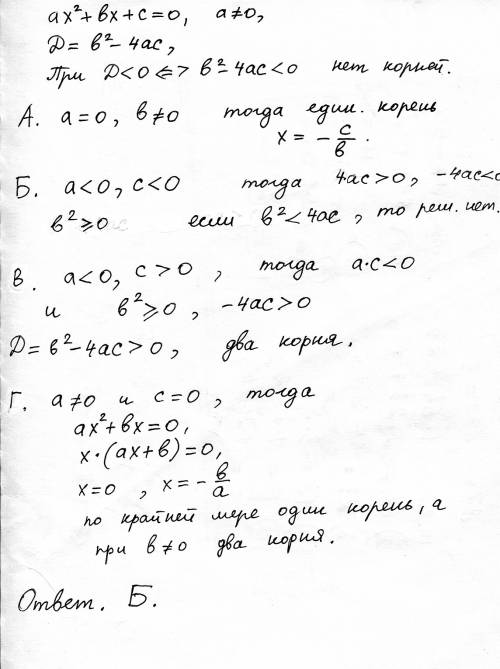 ax²+вx+c=0, a≠0,
Д= в²-4ac,
При Д<0 <=> в²-4ac<0 нет корней.
А. a=0, в≠0 тогда един. корень
x = - c/в.
Б. a<0, c<0 тогда 4ac>0, -4ac<0
в²⩾0 если в²<4ac, то реш. нет.
В. a<0, c>0, тогда a·c<0
и в²⩾0, -4ac>0
Д= в²-4ac>0, два корня.
Г. a≠0 и c=0, тогда
ax²+вx=0,
x·(ax+в)=0,
x=0, x=- в/a
по крайней мере один корень, а
при в≠0 два корня.
Ответ. Б.